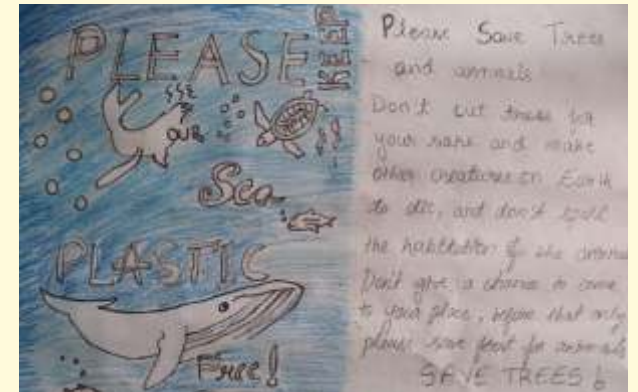 PLEASE
KEEP
OUR
Sea
PLASTIC
Free!
Please Save Trees
and animals
Don't cut trees for
your sake and make
other creatures on Earth
to die, and don't spoil
the of the
Don't give a chance to come
to your place, before that only
please save for animals
SAVE TREES!